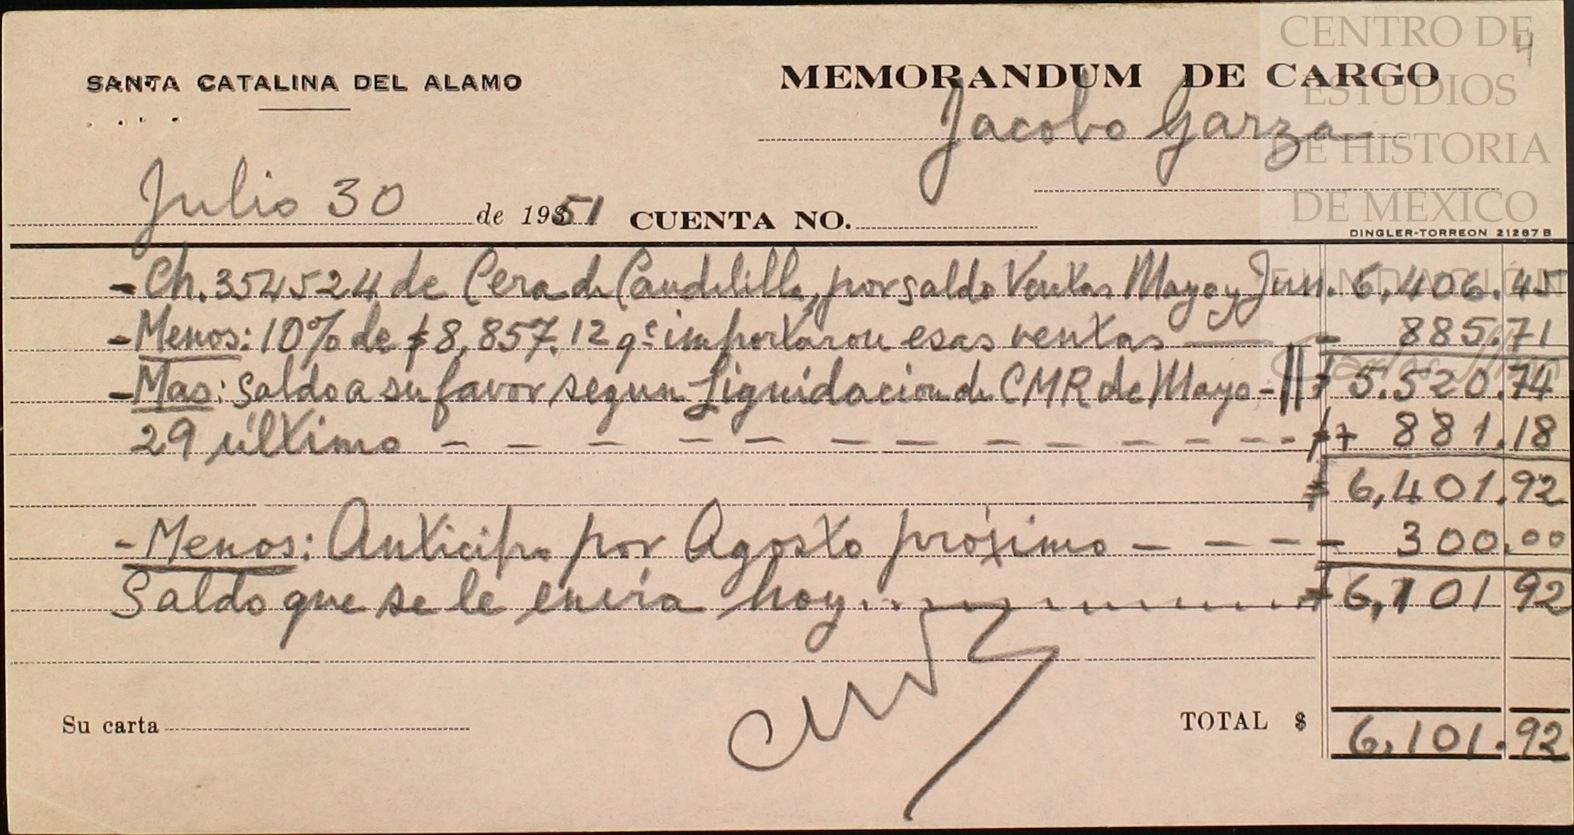 CENTRO DE
ESTUDIOS
DE HISTORIA
DE MEXICO
4
SANTA CATALINA DEL ALAMO
MEMORANDUM DE CARGO
Jacobo Garza
Julio 30 de 1951 CUENTA NO.
DINGLER-TORREON 21267 B
-Ch. 354524 de Cera de Candelilla, por saldo Ventas Mayo y Jun. 6,406.45
-Menos: 10% de $8,857.12 qe importaron esas ventas - 885.71
-Mas: Saldo a su favor segun Liquidacion de CMR de Mayo - $ 5.520.74
29 último - - - - - - - - - - - - + 881.18
$ 6,401.92
-Menos: Anticipo por Agosto próximo - - - - 300.00
Saldo que se le envía hoy........... $ 6,101.92
Su carta
TOTAL $ 6,101.92